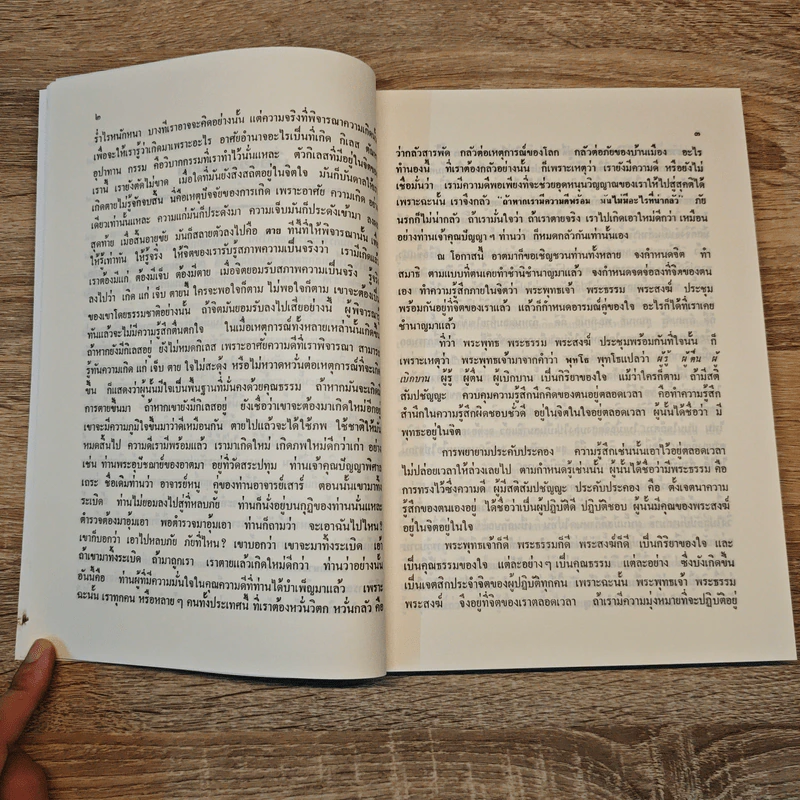 ๒
ร่ำไรหนักหนา บางทีเราอาจจะคิดอย่างนั้น แต่ความจริงที่พิจารณาความเกิด
เพื่อจะให้เรารู้ว่าเกิดมาเพราะอะไร อาศัยอำนาจอะไรเป็นที่เกิด กิเลส
อุปาทาน กรรม คือวิบากกรรมที่เราทำไว้นั่นแหละ ตัวกิเลสที่มีอยู่ในจิต
เรานี้ เรายังตัดไม่ขาด เมื่อใดมันยังสิงสถิตอยู่ในจิตใจ มันก็บันดาลให้
เกิดตายไม่รู้จักจบสิ้น นี่คือเหตุปัจจัยของการเกิด เพราะอาศัย ความเกิด
เดียวเท่านั้นแหละ ความแก่มันก็ประดังมา ความเจ็บมันก็ประดังเข้ามา
สุดท้าย เมื่อสิ้นอายุขัย มันก็สลายตัวลงไปคือ ตาย ที่นี้ที่ให้พิจารณานั้น
ให้รู้เท่าทัน ให้รู้จริง ให้จิตของเรารับรู้สภาพความเป็นจริงว่า เรามี
เราต้องมีแก่ ต้องมีเจ็บ ต้องมีตาย เมื่อจิตยอมรับสภาพความเป็นจริง รู้จริง
ลงไปว่า เกิด แก่ เจ็บ ตายนี้ ใครจะพอใจก็ตาม ไม่พอใจก็ตาม เขาจะต้องเป็น
ของเขาโดยธรรมชาติอย่างนั้น ถ้าจิตมันยอมรับลงไปเสียอย่างนี้ ผู้พิจารณา
ทันแล้วจะไม่มีความรู้สึกตื่นตกใจ ในเมื่อเหตุการณ์ทั้งหลายเหล่านั้นเกิดขึ้น
ถ้าหากยังมีกิเลสอยู่ ยังไม่หมดกิเลส เพราะอาศัยความดีที่เราพิจารณา สามารถ
รู้ทันความเกิด แก่ เจ็บ ตาย ใจไม่สะดุ้ง หรือไม่หวาดหวั่นต่อเหตุการณ์ที่จะเกิด
ขึ้น ก็แสดงว่าผู้นั้นมีใจเป็นพื้นฐานที่มั่นคงด้วยคุณธรรม ถ้าหากมันจะเกิดมี
การตายขึ้นมา ถ้าหากเขายังมีกิเลสอยู่ ยังเชื่อว่าเขาจะต้องมาเกิดใหม่อีก
เขาจะมีความภูมิใจขึ้นมาว่าดีเหมือนกัน ตายไปแล้วจะได้ใช้ภพ ใช้ชาติให้มัน
หมดสิ้นไป ความดีเรามีพร้อมแล้ว เรามาเกิดใหม่ เกิดภพใหม่ดีกว่าเก่า อย่าง
เช่น ท่านพระอุปัชฌาย์ของอาตมา อยู่ที่วัดสระปทุม ท่านเจ้าคุณปัญญาพิศาล
เถระ ชื่อเดิมท่านว่า อาจารย์หนู คู่ของท่านอาจารย์เสาร์ ตอนนั้นเขามาทิ้ง
ระเบิด ท่านไม่ยอมลงไปสู่ที่หลบภัย ท่านก็นั่งอยู่บนกุฏิของท่านนั่นแหละ
ตำรวจต้องมาอุ้มเอา พอตำรวจมาอุ้มเอา ท่านก็ถามว่า จะเอาฉันไปไหน?
เขาก็บอกว่า เอาไปหลบภัย ภัยที่ไหน? เขาบอกว่า เขาจะมาทิ้งระเบิด เอ้า
ถ้าเขามาทิ้งระเบิด ถ้ามาถูกเรา เราตายแล้วเกิดใหม่ดีกว่า ท่านว่าอย่างนั้น
อันนี้คือ ท่านผู้ที่มีความมั่นใจในคุณความดีที่ท่านได้บำเพ็ญมาแล้ว เพราะ
ฉะนั้น เราทุกคน หรือหลาย ๆ คนทั้งประเทศนี้ ที่เราต้องหวั่นวิตก หวั่นกลัว คือ
๓
ว่ากลัวสารพัด กลัวต่อเหตุการณ์ของโลก กลัวต่อภัยของบ้านเมือง อะไร
ทำนองนี้ ที่เราต้องกลัวอย่างนั้น ก็เพราะเหตุว่า เรายังมีความดี หรือยังไม่
เชื่อมั่นว่า เรามีความดีพอเพียงที่จะช่วยอุดหนุนวิญญาณของเราให้ไปสู่สุคติได้
เพราะฉะนั้น เราจึงกลัว "ถ้าหากเรามีความดีพร้อม มันไม่มีอะไรที่น่ากลัว" ภัย
นรกก็ไม่น่ากลัว ถ้าเรามั่นใจว่า ถ้าเราตายจริง เราไปเกิดเอาใหม่ดีกว่า เหมือน
อย่างท่านเจ้าคุณปัญญา ฯ ท่านว่า ก็หมดกลัวกันเท่านั้นเอง
ณ โอกาสนี้ อาตมาก็ขอเชิญชวนท่านทั้งหลาย จงกำหนดจิต ทำ
สมาธิ ตามแบบที่ตนเคยทำชำนิชำนาญมาแล้ว จงกำหนดจดจ่อลงที่จิตของตน
เอง ทำความรู้สึกภายในจิตว่า พระพุทธเจ้า พระธรรม พระสงฆ์ ประชุม
พร้อมกันอยู่ที่จิตของเราแล้ว แล้วก็กำหนดอารมณ์คู่ของใจ อะไรก็ได้ที่เราเคย
ชำนาญมาแล้ว
ที่ว่า พระพุทธ พระธรรม พระสงฆ์ ประชุมพร้อมกันที่ใจนั้น ก็
เพราะเหตุว่า พระพุทธเจ้ามาจากคำว่า พุทโธ พุทโธแปลว่า ผู้รู้ ผู้ตื่น ผู้
เบิกบาน ผู้รู้ ผู้ตื่น ผู้เบิกบาน เป็นกิริยาของใจ แม้ว่าใครก็ตาม ถ้ามีสติ
สัมปชัญญะ ควบคุมความรู้สึกนึกคิดของตนอยู่ตลอดเวลา คือทำความรู้สึก
สำนึกในความรู้สึกผิดชอบชั่วดี อยู่ในจิตในใจอยู่ตลอดเวลา ผู้นั้นได้ชื่อว่า มี
พุทธะอยู่ในจิต
การพยายามประคับประคอง ความรู้สึกเช่นนั้นเอาไว้อยู่ตลอดเวลา
ไม่ปล่อยเวลาให้ล่วงเลยไป ตามกำหนดรู้เช่นนั้น ผู้นั้นได้ชื่อว่ามีพระธรรม คือ
การทรงไว้ซึ่งความดี ผู้มีสติสัมปชัญญะ ประคับประคอง คือ ตั้งเจตนาความ
รู้สึกของตนเองอยู่ ได้ชื่อว่าเป็นผู้ปฏิบัติดี ปฏิบัติชอบ ผู้นั้นมีคุณของพระสงฆ์
อยู่ในจิตอยู่ในใจ
พระพุทธเจ้าก็ดี พระธรรมก็ดี พระสงฆ์ก็ดี เป็นกิริยาของใจ และ
เป็นคุณธรรมของใจ แต่ละอย่างๆ เป็นคุณธรรม แต่ละอย่าง ซึ่งบังเกิดขึ้น
เป็นเจตสิกประจำจิตของผู้ปฏิบัติทุกคน เพราะฉะนั้น พระพุทธเจ้า พระธรรม
พระสงฆ์ จึงอยู่ที่จิตของเราตลอดเวลา ถ้าเรามีความมุ่งหมายที่จะปฏิบัติอยู่